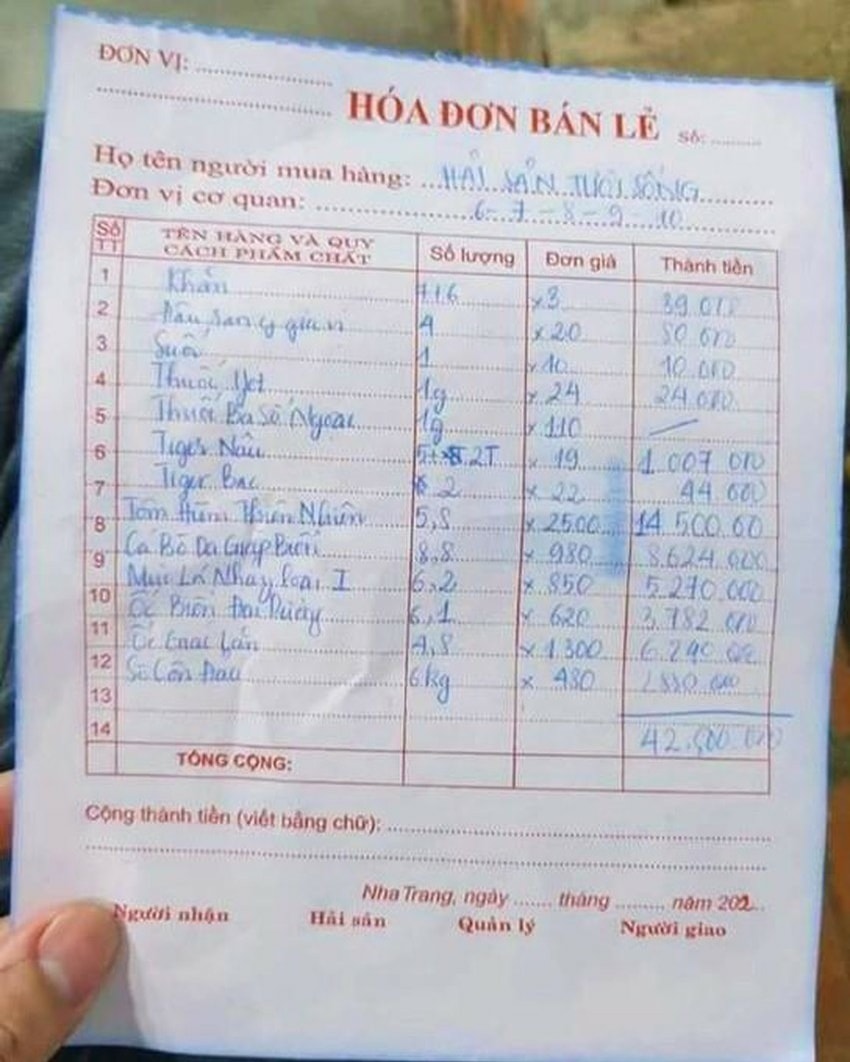 ĐƠN VỊ: ........................
........................
HÓA ĐƠN BÁN LẺ Số: ........
Họ tên người mua hàng: HẢI SẢN TƯƠI SỐNG
Đơn vị cơ quan: 6-7-8-9-10
Số TT TÊN HÀNG VÀ QUY CÁCH PHẨM CHẤT Số lượng Đơn giá Thành tiền
1 Khăn 7+6 x 3 39.000
2 gia vị 4 x 20 80.000
3 Suối 1 x 10 10.000
4 Thuốc Jet 1g x 24 24.000
5 Thuốc Ba Số Ngoại 1g x 110 —
6 Tiger Nâu 2T x 19 1.007.000
7 Tiger Bạc 2 x 22 44.000
8 Tôm Hùm Thiên Nhiên 5,8 x 2500 14.500.00
9 Cá Bò Da Giáp Biển 8.8 x 980 8.624.000
10 Mực Lá Nhảy loại I 6,2 x 850 5.270.000
11 Ốc Biển Đại Dương 6,1 x 620 3.782.000
12 Ốc Lớn 4,8 x 1300 6.240.00
13 Sò Côn Đảo 6kg x 480 2880.000
14 42.500.000
TỔNG CỘNG:
Cộng thành tiền (viết bằng chữ): ........................
Nha Trang, ngày ....... tháng ......... năm 202...
Người nhận Hải sản Quản lý Người giao